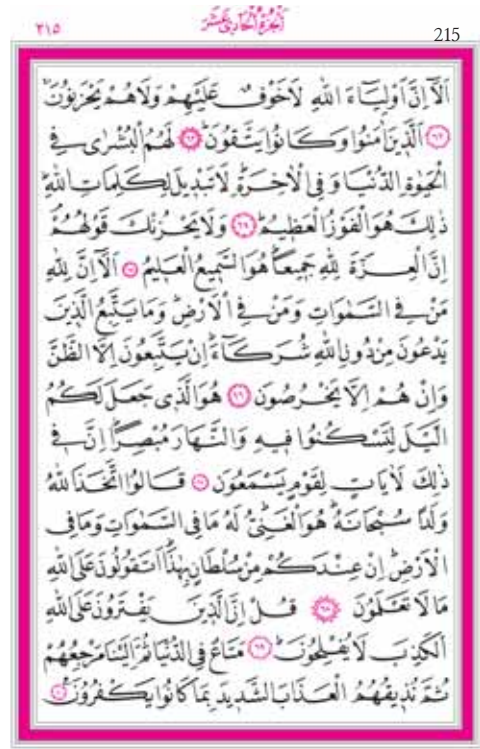 ٢١٥ اَلْجُزْءُ الْحَادِي عَشَرَ 215
اَلَٓا اِنَّ اَوْلِيَٓاءَ اللّٰهِ لَاخَوْفٌ عَلَيْهِمْ وَلَاهُمْ يَحْزَنُونَۚ
﴿٦٢﴾ اَلَّذ۪ينَ اٰمَنُوا وَكَانُوا يَتَّقُونَۜ ﴿٦٣﴾ لَهُمُ الْبُشْرٰى فِي
الْحَيٰوةِ الدُّنْيَا وَفِي الْاٰخِرَةِۜ لَا تَبْد۪يلَ لِكَلِمَاتِ اللّٰهِۜ
ذٰلِكَ هُوَ الْفَوْزُ الْعَظ۪يمُۜ ﴿٦٤﴾ وَلَا يَحْزُنْكَ قَوْلُهُمْۢ
اِنَّ الْعِزَّةَ لِلّٰهِ جَم۪يعًاۜ هُوَ السَّم۪يعُ الْعَل۪يمُ ﴿٦٥﴾ اَلَٓا اِنَّ لِلّٰهِ
مَنْ فِي السَّمٰوَاتِ وَمَنْ فِي الْاَرْضِۜ وَمَا يَتَّبِعُ الَّذ۪ينَ
يَدْعُونَ مِنْ دُونِ اللّٰهِ شُرَكَٓاءَۜ اِنْ يَتَّبِعُونَ اِلَّا الظَّنَّ
وَاِنْ هُمْ اِلَّا يَخْرُصُونَ ﴿٦٦﴾ هُوَ الَّذ۪ي جَعَلَ لَكُمُ
الَّيْلَ لِتَسْكُنُوا ف۪يهِ وَالنَّهَارَ مُبْصِرًاۜ اِنَّ ف۪ي
ذٰلِكَ لَاٰيَاتٍ لِقَوْمٍ يَسْمَعُونَ ﴿٦٧﴾ قَالُوا اتَّخَذَ اللّٰهُ
وَلَدًا سُبْحَانَهُۜ هُوَ الْغَنِيُّۜ لَهُ مَا فِي السَّمٰوَاتِ وَمَا فِي
الْاَرْضِۜ اِنْ عِنْدَكُمْ مِنْ سُلْطَانٍ بِهٰذَاۜ اَتَقُولُونَ عَلَى اللّٰهِ
مَا لَا تَعْلَمُونَ ﴿٦٨﴾ قُلْ اِنَّ الَّذ۪ينَ يَفْتَرُونَ عَلَى اللّٰهِ
الْكَذِبَ لَا يُفْلِحُونَۜ ﴿٦٩﴾ مَتَاعٌ فِي الدُّنْيَا ثُمَّ اِلَيْنَا مَرْجِعُهُمْ
ثُمَّ نُذ۪يقُهُمُ الْعَذَابَ الشَّد۪يدَ بِمَا كَانُوا يَكْفُرُونَ۟ ﴿٧٠﴾